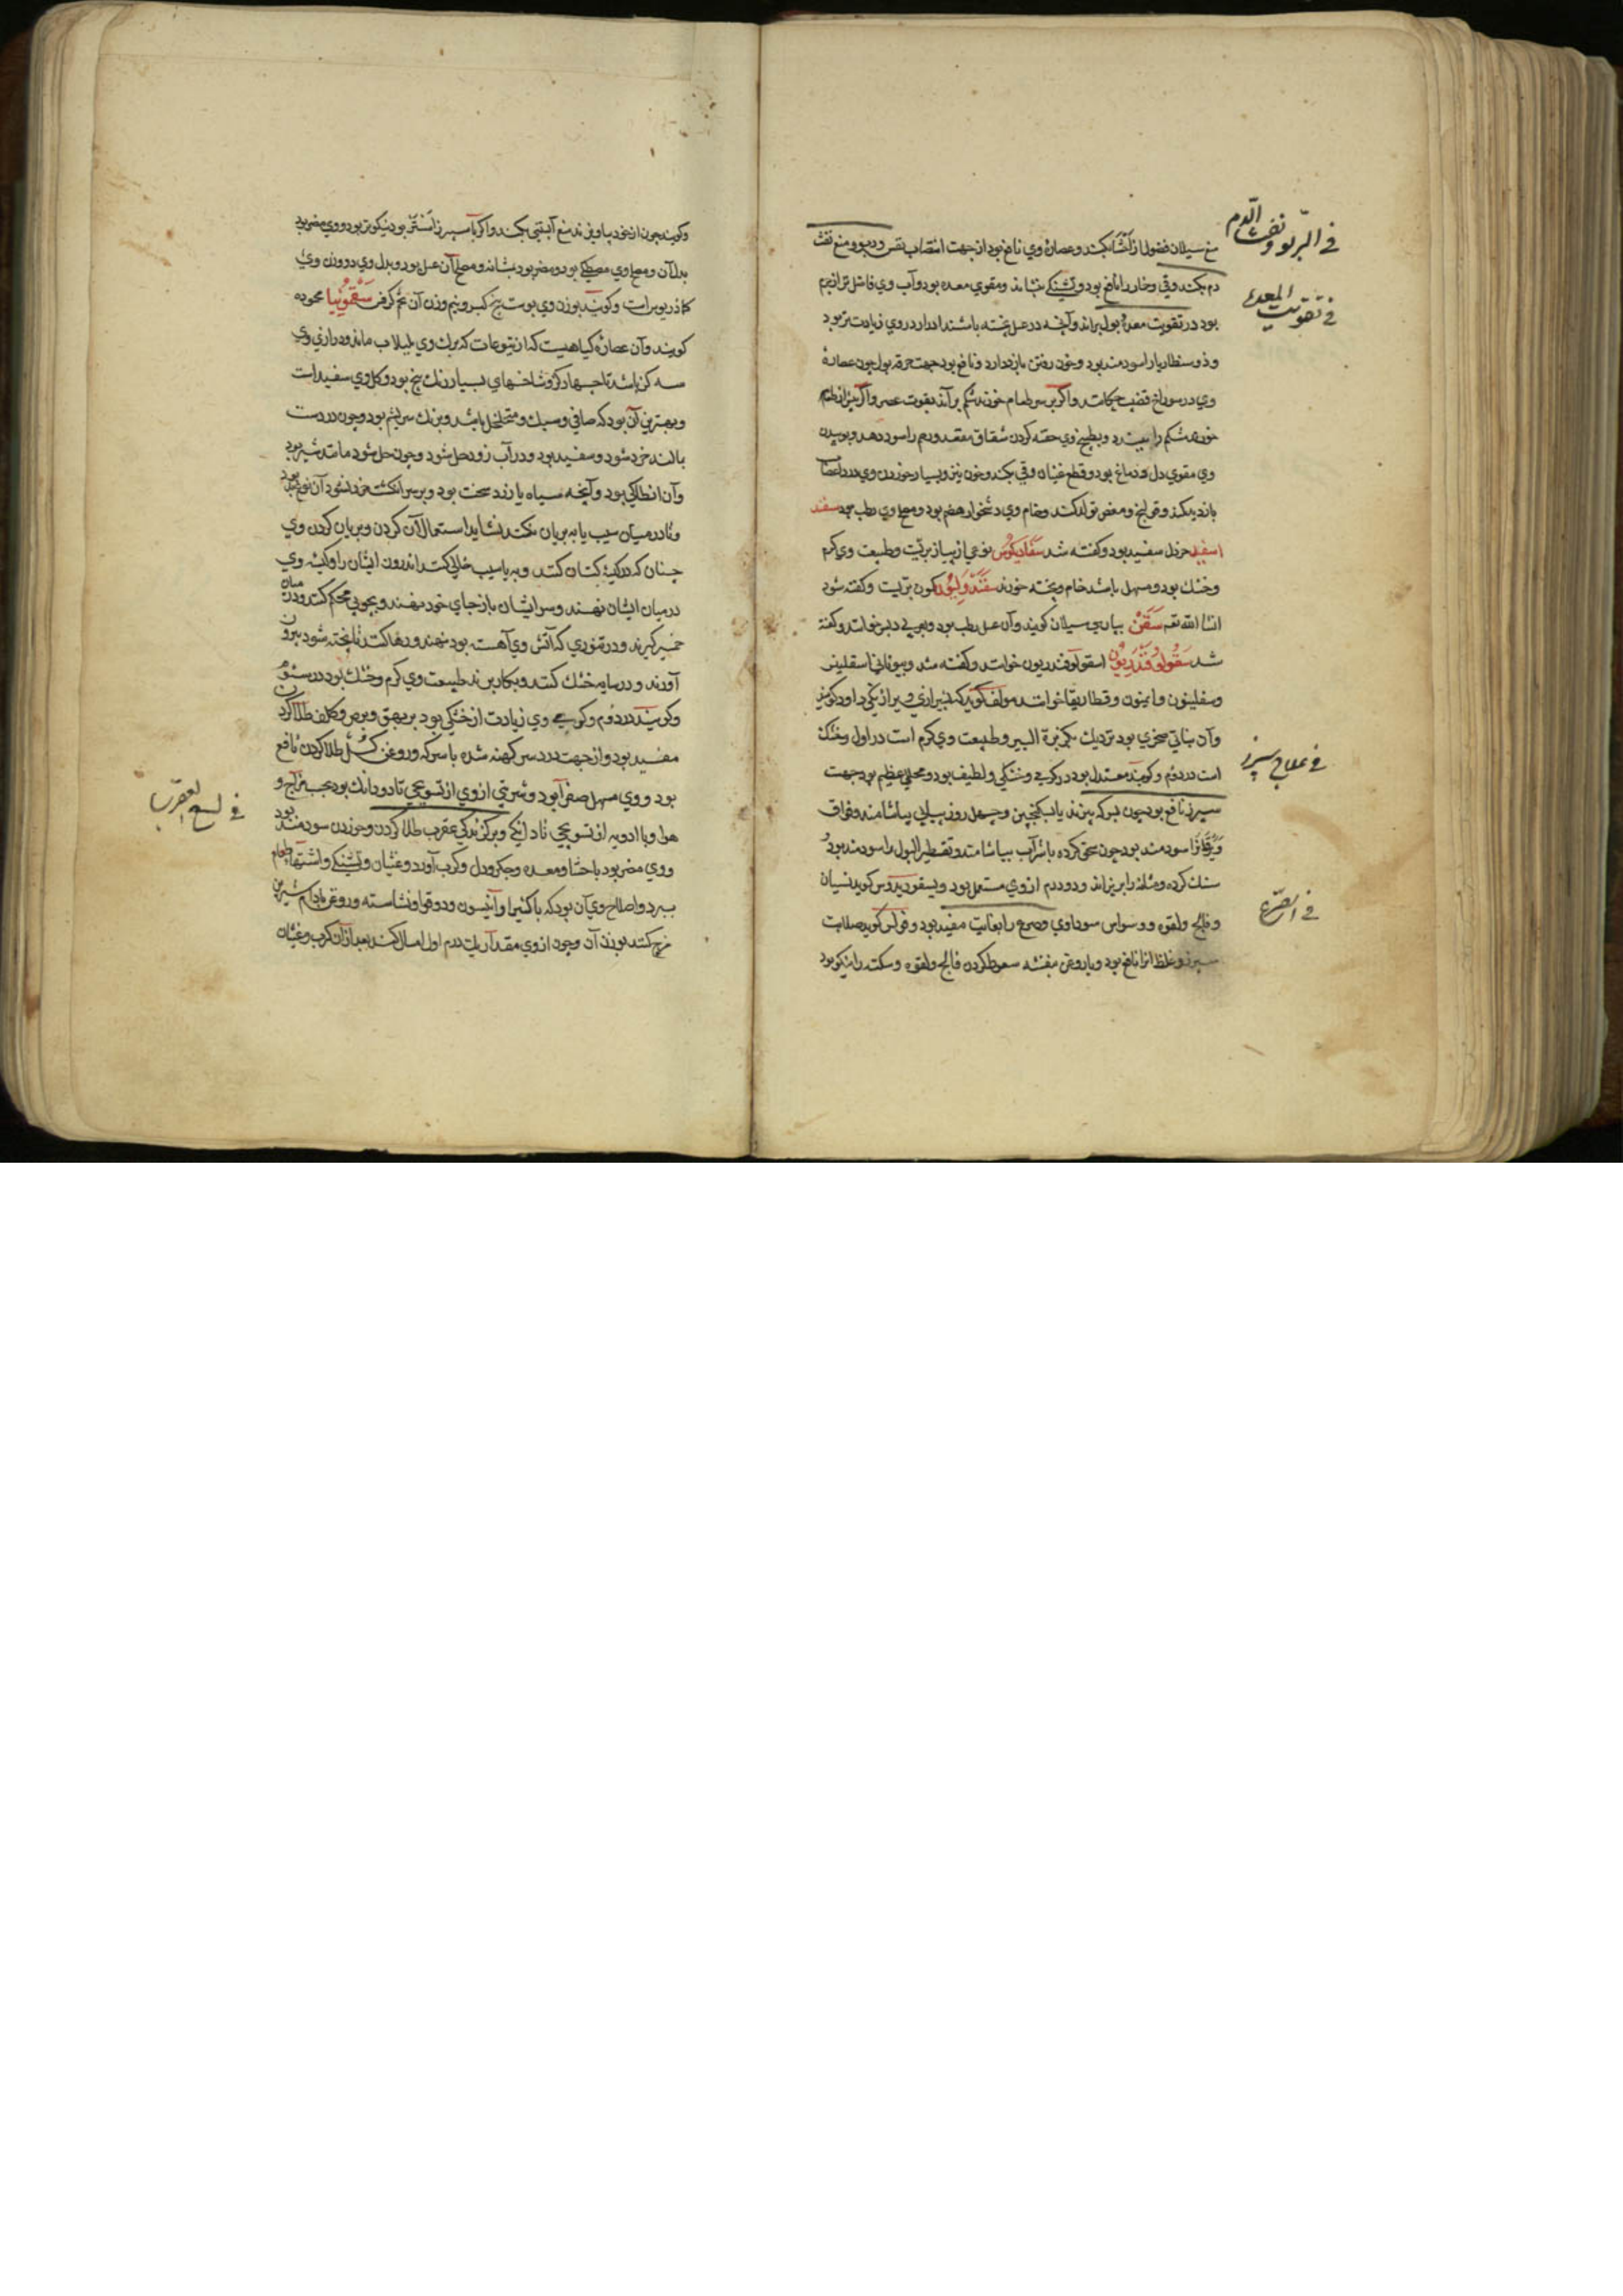 في الربو ونفث الدم
في تقوية المعدة
في علاج سپرز
في الصرع
منع سیلان فضول از احشا بکند و عصارهٔ وي نافع بود از جهت انتصاب نفس و ربو و منع نفث
دم بکند و قي و خار را نافع بود و تشنکي بنشاند و مقوي معده بود و آب وي فاضل تر از جرم
بود در تقویت معده و بول براند و آنچه در عسل پخته باشند ادرار در وي زیادت تر بود
و ذوسنطاریا را سودمند بود و خون رفتن بازدارد و نافع بود جهت حرقه بول چون عصارهٔ
وي در سوراخ قضیب چکانند و اکر بر سر طعام خورند شکم براند بقوت عصر و اکر پیش از طعام
خورند شکم را ببندد و بطبیخ وي حقنه کردن شقاق مقعد و رحم را سود دهد و بوییدن
وي مقوي دل و دماغ بود و قطع غثیان و قي بکند و خون نیز و بسیار خوردن وي درد اعصاب
بازدید کند و قولنج و مغص تولد کند و خام وي دشخوار هضم بود و مصلح وي رطب بود سفند
اسفید خردل سفید بود و کفته شد سفادیکوس نوعي از پیاز بریست و طبیعت وي کرم
و خشك بود و مسهل باشد خام و پخته خورند سفندولیون کمون بریست و کفته شود
انشا الله تعـ سقن بپارسي سیلان کویند و آن عسل رطب بود و بعربي دبس خوانند و کفته
شد سقولوقندریون اسقولوقندریون خوانند و کفته شد و بیوناني اسقلینس
و سقلینون و ایمنون و قطاریقا خوانند مولف کوید کـ
وآن نباتي صخري بود نزدیك بکزبرة البیر و طبیعت وي کرم است در اول و خشك
است در دوم و کویند معتدل بود در کرمي و خشکي و لطیف بود و محلل عظیم بود جهت
سپرز نافع بود چون بسرکه بپزند یا بسکنجبین و چهل روز پیاپي بیاشامند و فواق
و یرقان را سودمند بود چون سحق کرده با شراب بیاشامند و تقطیر البول را سودمند بود
سنك کرده و مثانه را بریزاند و دو درم از وي مستعمل بود و دیسقوریدوس کوید نسیان
و فالج و لقوه و وسواس سوداوي و صرع را بغایت مفید بود و فولس کوید صلابت
سپرز و غلظ انرا نافع بود و با روغن بنفشه سعوط کردن فالج و لقوه و سکته را نیکو بود
وکویند چون از خود بیاویزند منع آبستني بکند و اکر با سپرز استر بود نیکوتر بود و وي مضر بود
بدل آن و مصلح وي مصطکي بود و مضر بود بمثانه و مصلح آن عسل بود و بدل وي دو وزن وي
کماذریوس است و کویند بوزن وي پوست بیخ کبر و نیم وزن آن تخم کرفس سقمونیا محموده
کویند و آن عصارهٔ کیاهیست که از یتوعات که برك وي بلبلاب ماند و درازي وي
سه کز باشد تا چهار کز و شاخهاي بسیار از یك بیخ بود و کل وي سفید است
و بهترین آن بود که صافي و سبك و متخلخل باشد و برنك سریشم بود و چون در دست
بمالند خرد شود و سفید بود و در آب زود حل شود و چون حل شود مانند شیر بود
وآن انطاکي بود و آنچه سیاه یا زرد سخت بود و بر سر انکشت خرد نشود آن نوع بد بود
و تا در میان سیب یا به بریان نکنند نشاید استعمال آن کردن و بریان کردن وي
چنان که در کیسهٔ کتان کنند و به یا سیب خالي کنند اندرون ایشان را و کیسه وي
در میان ایشان نهند و سر ایشان باز جاي خود نهند و بچوبي محکم کنند و در میان
خمیر کیرند و در تنوري که آتش وي آهسته بود نهند و رها کنند تا پخته شود بیرون
آورند و در سایه خشك کنند و بکار برند طبیعت وي کرم و خشك بود در سیوم
وکویند در دوم و کرمي وي زیادت از خشکي بود بر بهق و برص و کلف طلا کردن
مفید بود و از جهت درد سر کهنه شده با سرکه و روغن کل طلا کردن نافع
بود و وي مسهل صفرا بود و شربتي از وي از تسویجي تا دو دانك بود بحسب مزاج و
هوا و با ادویه از تسویجي تا دانکي و بر کزندکي عقرب طلا کردن و خوردن سودمند بود
و وي مضر بود باحشا و معده و جکر و دل و کرب آورد و غثیان و تشنکي و اشتهاي طعام
ببرد و اصلاح وي آن بود که با کثیرا و آنیسون و دوقو و نشاسته و روغن بادام شیرین
مزج کنند بوزن آن و چون از وي مقدار یك درم اول اسهال کند بعد از آن کرب و غثیان
في لسع العقرب